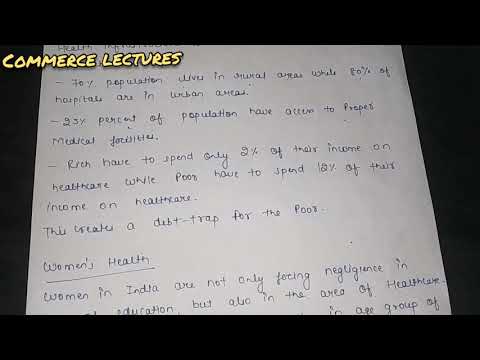 COMMERCE LECTURES
Health
- 70% population lives in rural areas while 80% of
hospitals are in urban areas.
- 23% percent of population have access to Proper
Medical facilities.
- Rich have to spend only 2% of their income on
healthcare while Poor have to spend 12% of their
income on healthcare.
This creates a debt-trap for the Poor.
Women's Health
Women in India are not only facing negligience in
education, but also in the area of Healthcare.
in age group of